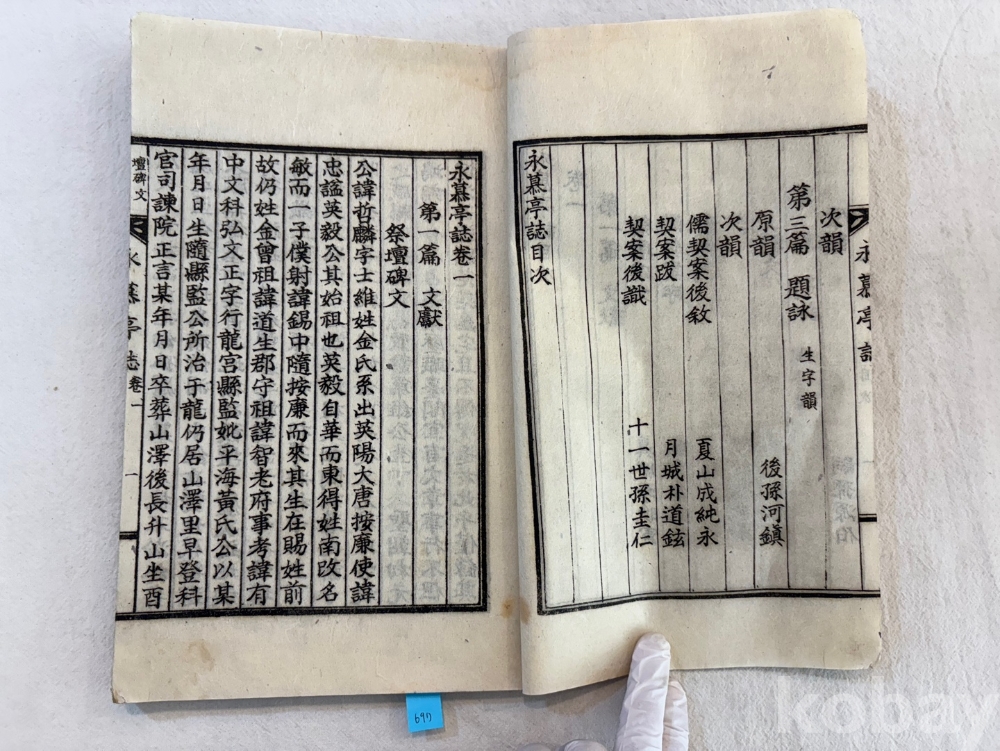 次韻
第三篇 題詠 生字韻
原韻 後孫河鎭
次韻
儒契案後敘 夏山成純永
契案跋 月城朴道鉉
契案後識 十一世孫圭仁
永慕亭誌目次
永慕亭誌
永慕亭誌卷一
第一篇 文獻
祭壇碑文
公諱哲麟字士維姓金氏系出英陽大唐按廉使諱
忠謚英毅公其始祖也英毅自華而東得姓南改名
敏而一子僕射諱錫中隨按廉而來其生在賜姓前
故仍姓金曾祖諱道生郡守祖諱智老府事考諱有
中文科弘文正字行龍宮縣監妣平海黃氏公以某
年月日生隨縣監公所治于龍仍居山澤里早登科
官司諫院正言某年月日卒葬山澤後長升山坐酉
壇碑文 永慕亭誌 卷一 一
697
kobay